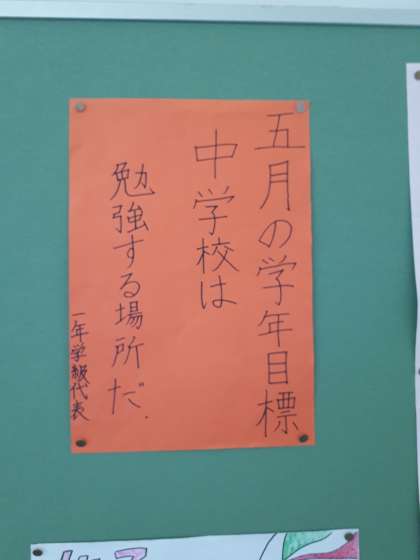 五月の学年目標
中学校は
勉強する場所だ.
一年学級代表